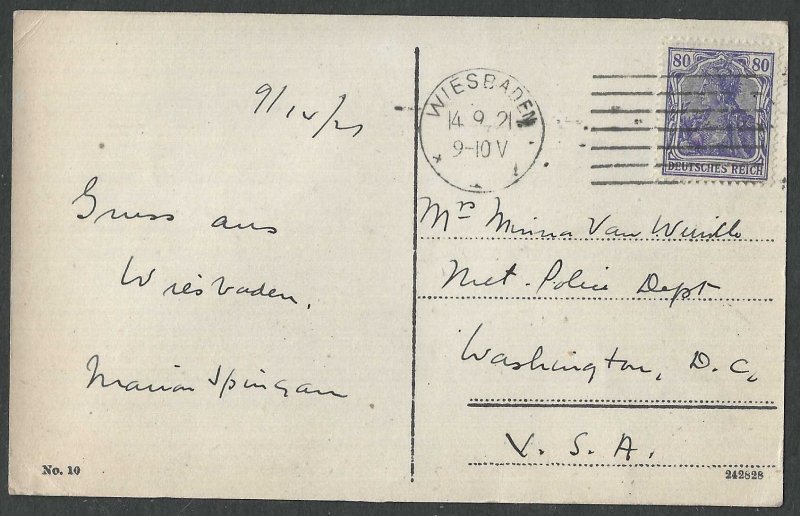 9/14/21
Gruss aus
Wiesbaden.
Marion Spingarn
No. 10
WIESBADEN
14.9.21
9-10 V
80 80
DEUTSCHES REICH
Mrs Minna Van
Met. Police Dept
Washington, D.C.
U. S. A.
242828